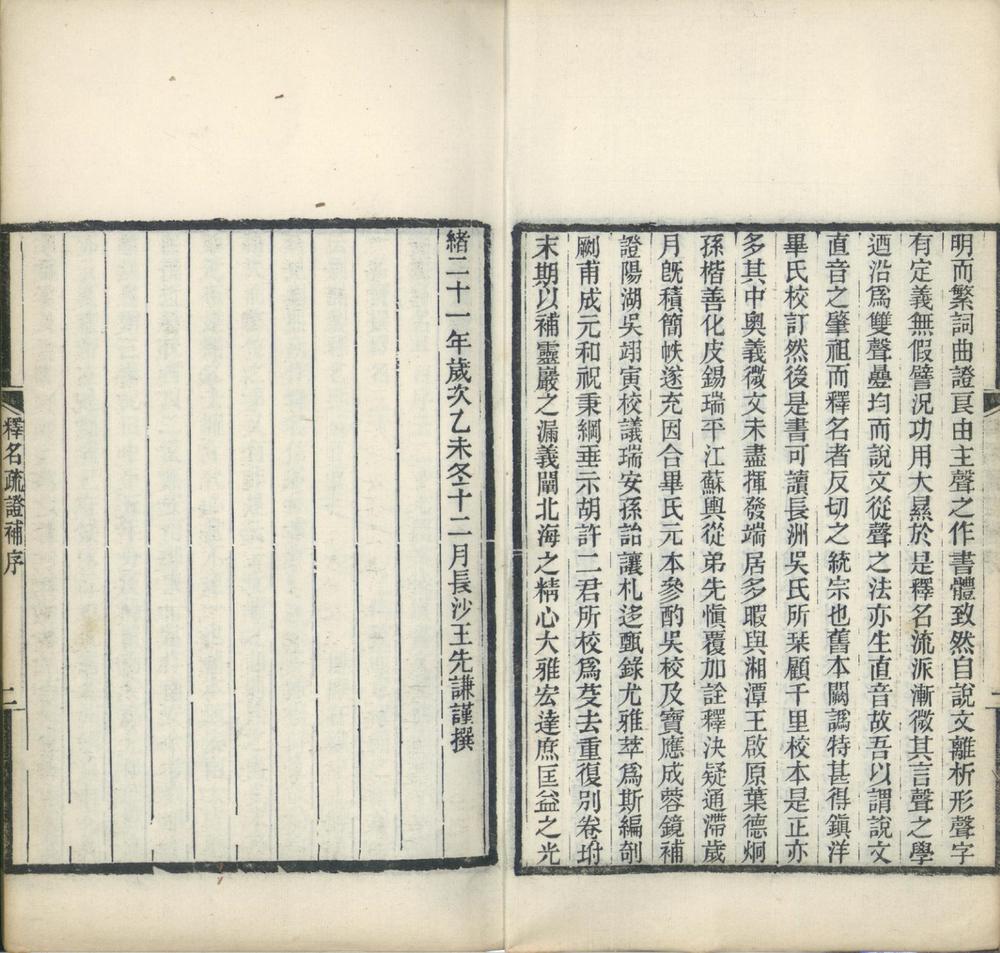 明而繁詞曲證良由主聲之作書體致然自說文離析形聲字
有定義無假譬況功用大㬎於是釋名流派漸微其言聲之學
迺沿爲雙聲曡均而說文從聲之法亦生直音故吾以謂說文
直音之肇祖而釋名者反切之統宗也舊本闕譌特甚得鎭洋
畢氏校訂然後是書可讀長洲吳氏所栞顧千里校本是正亦
多其中奧義微文未盡揮發端居多暇與湘潭王啟原葉德炯
孫楷善化皮錫瑞平江蘇輿從弟先愼覆加詮釋決疑通滯歲
月旣積簡帙遂充因合畢氏元本參酌吳校及寶應成蓉鏡補
證陽湖吳翊寅校議瑞安孫詒讓札迻甄錄尤雅萃爲斯編剞
劂甫成元和祝秉綱垂示胡許二君所校爲芟去重復別卷坿
末期以補靈巖之漏義闡北海之精心大雅宏達庶匡益之光
緒二十一年歲次乙未冬十二月長沙王先謙謹撰
釋名疏證補序
二